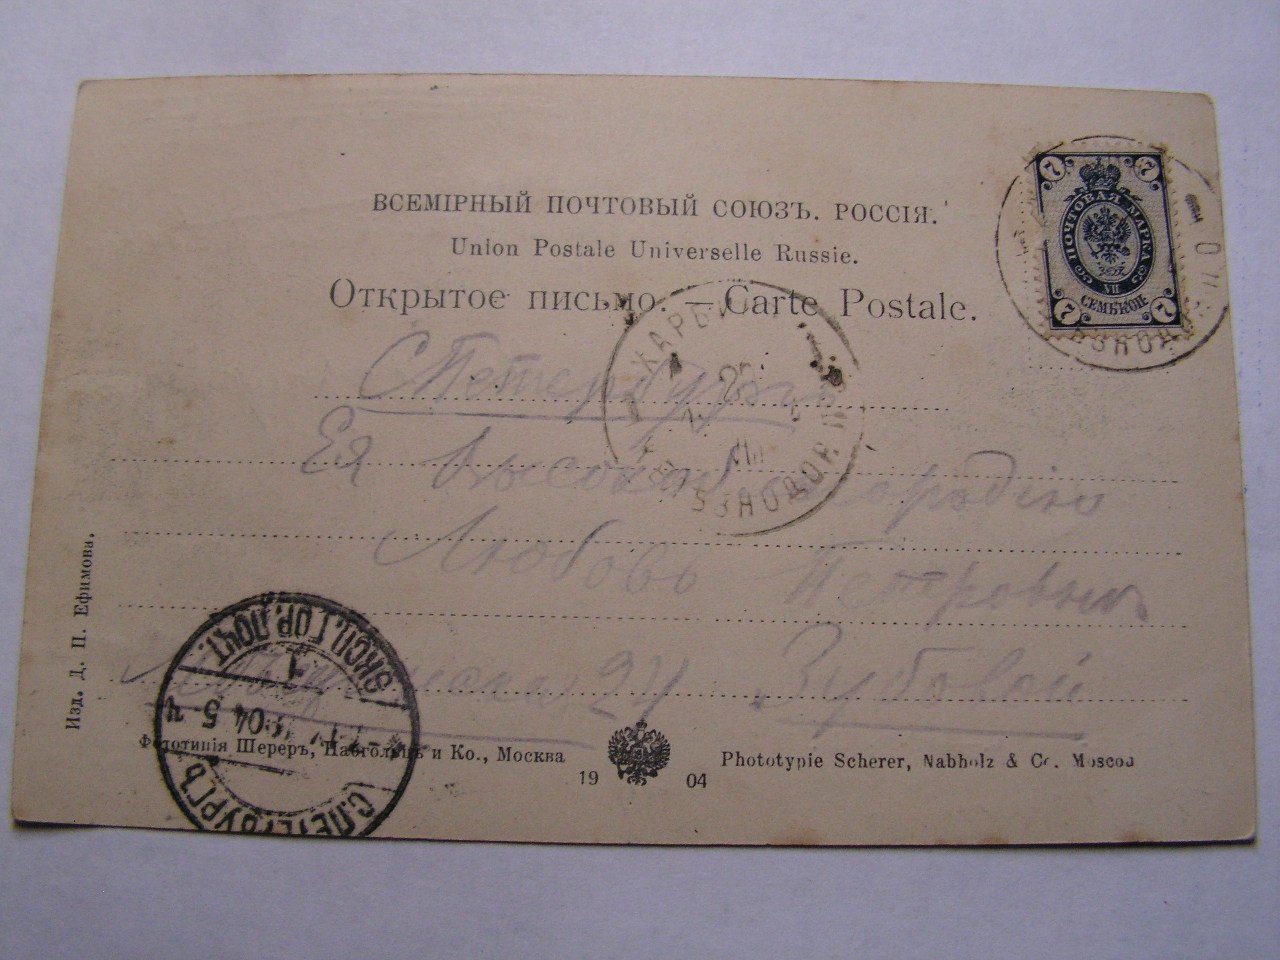 ВСЕМІРНЫЙ ПОЧТОВЫЙ СОЮЗЪ. РОССІЯ.
Union Postale Universelle Russie.
Открытое письмо. — Carte Postale.
7 7
ПОЧТОВАЯ МАРКА
VII
СЕМЬ КОП.
7 7
ХАРБИН
СПетербургъ
Ея Высокоблагородію
Любовь Петровнѣ
24 Зубовой
Изд. Д. П. Ефимова.
ЭКСП. ГОР. ПОЧТ.
1
04 5
С.ПЕТЕРБУРГЪ
Фототипія Шереръ, Набгольцъ и Ко., Москва
19 04
Phototypie Scherer, Nabholz & Co. Moscou